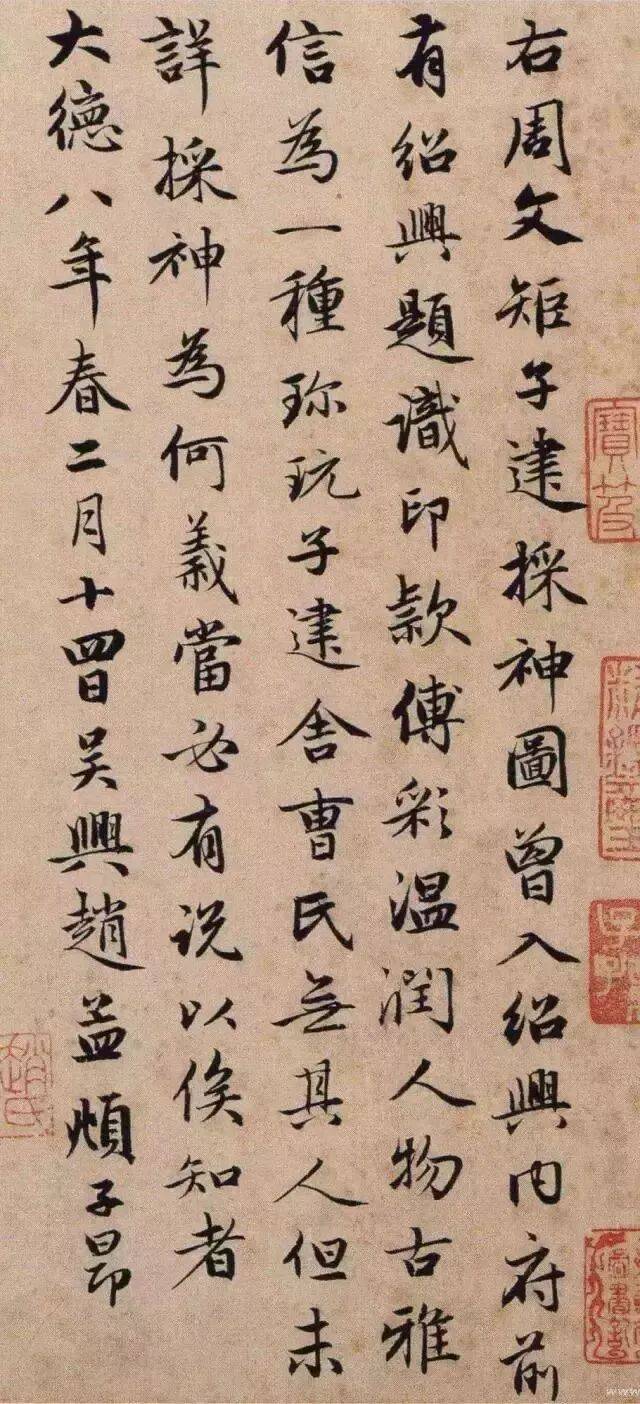 右周文矩子建採神圖曾入紹興内府前
有紹興題識印款傅彩温潤人物古雅
信為一種珎玩子建舍曹氏無其人但未
詳採神為何義當必有说以俟知者
大德八年春二月十四日吴興趙孟頫子昂
趙氏